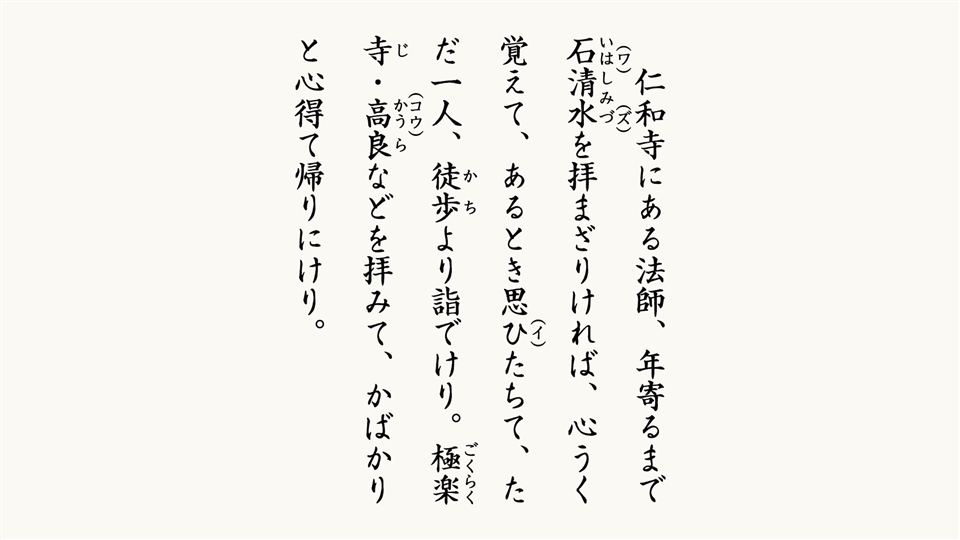 仁和寺にある法師、年寄るまで
石清水を拝まざりければ、心うく
覚えて、あるとき思ひたちて、た
だ一人、徒歩より詣でけり。極楽
寺・高良などを拝みて、かばかり
と心得て帰りにけり。
いはしみづ
(ワ)
(ズ)
(イ)
かち
ごくらく
じ
かうら
(コウ)